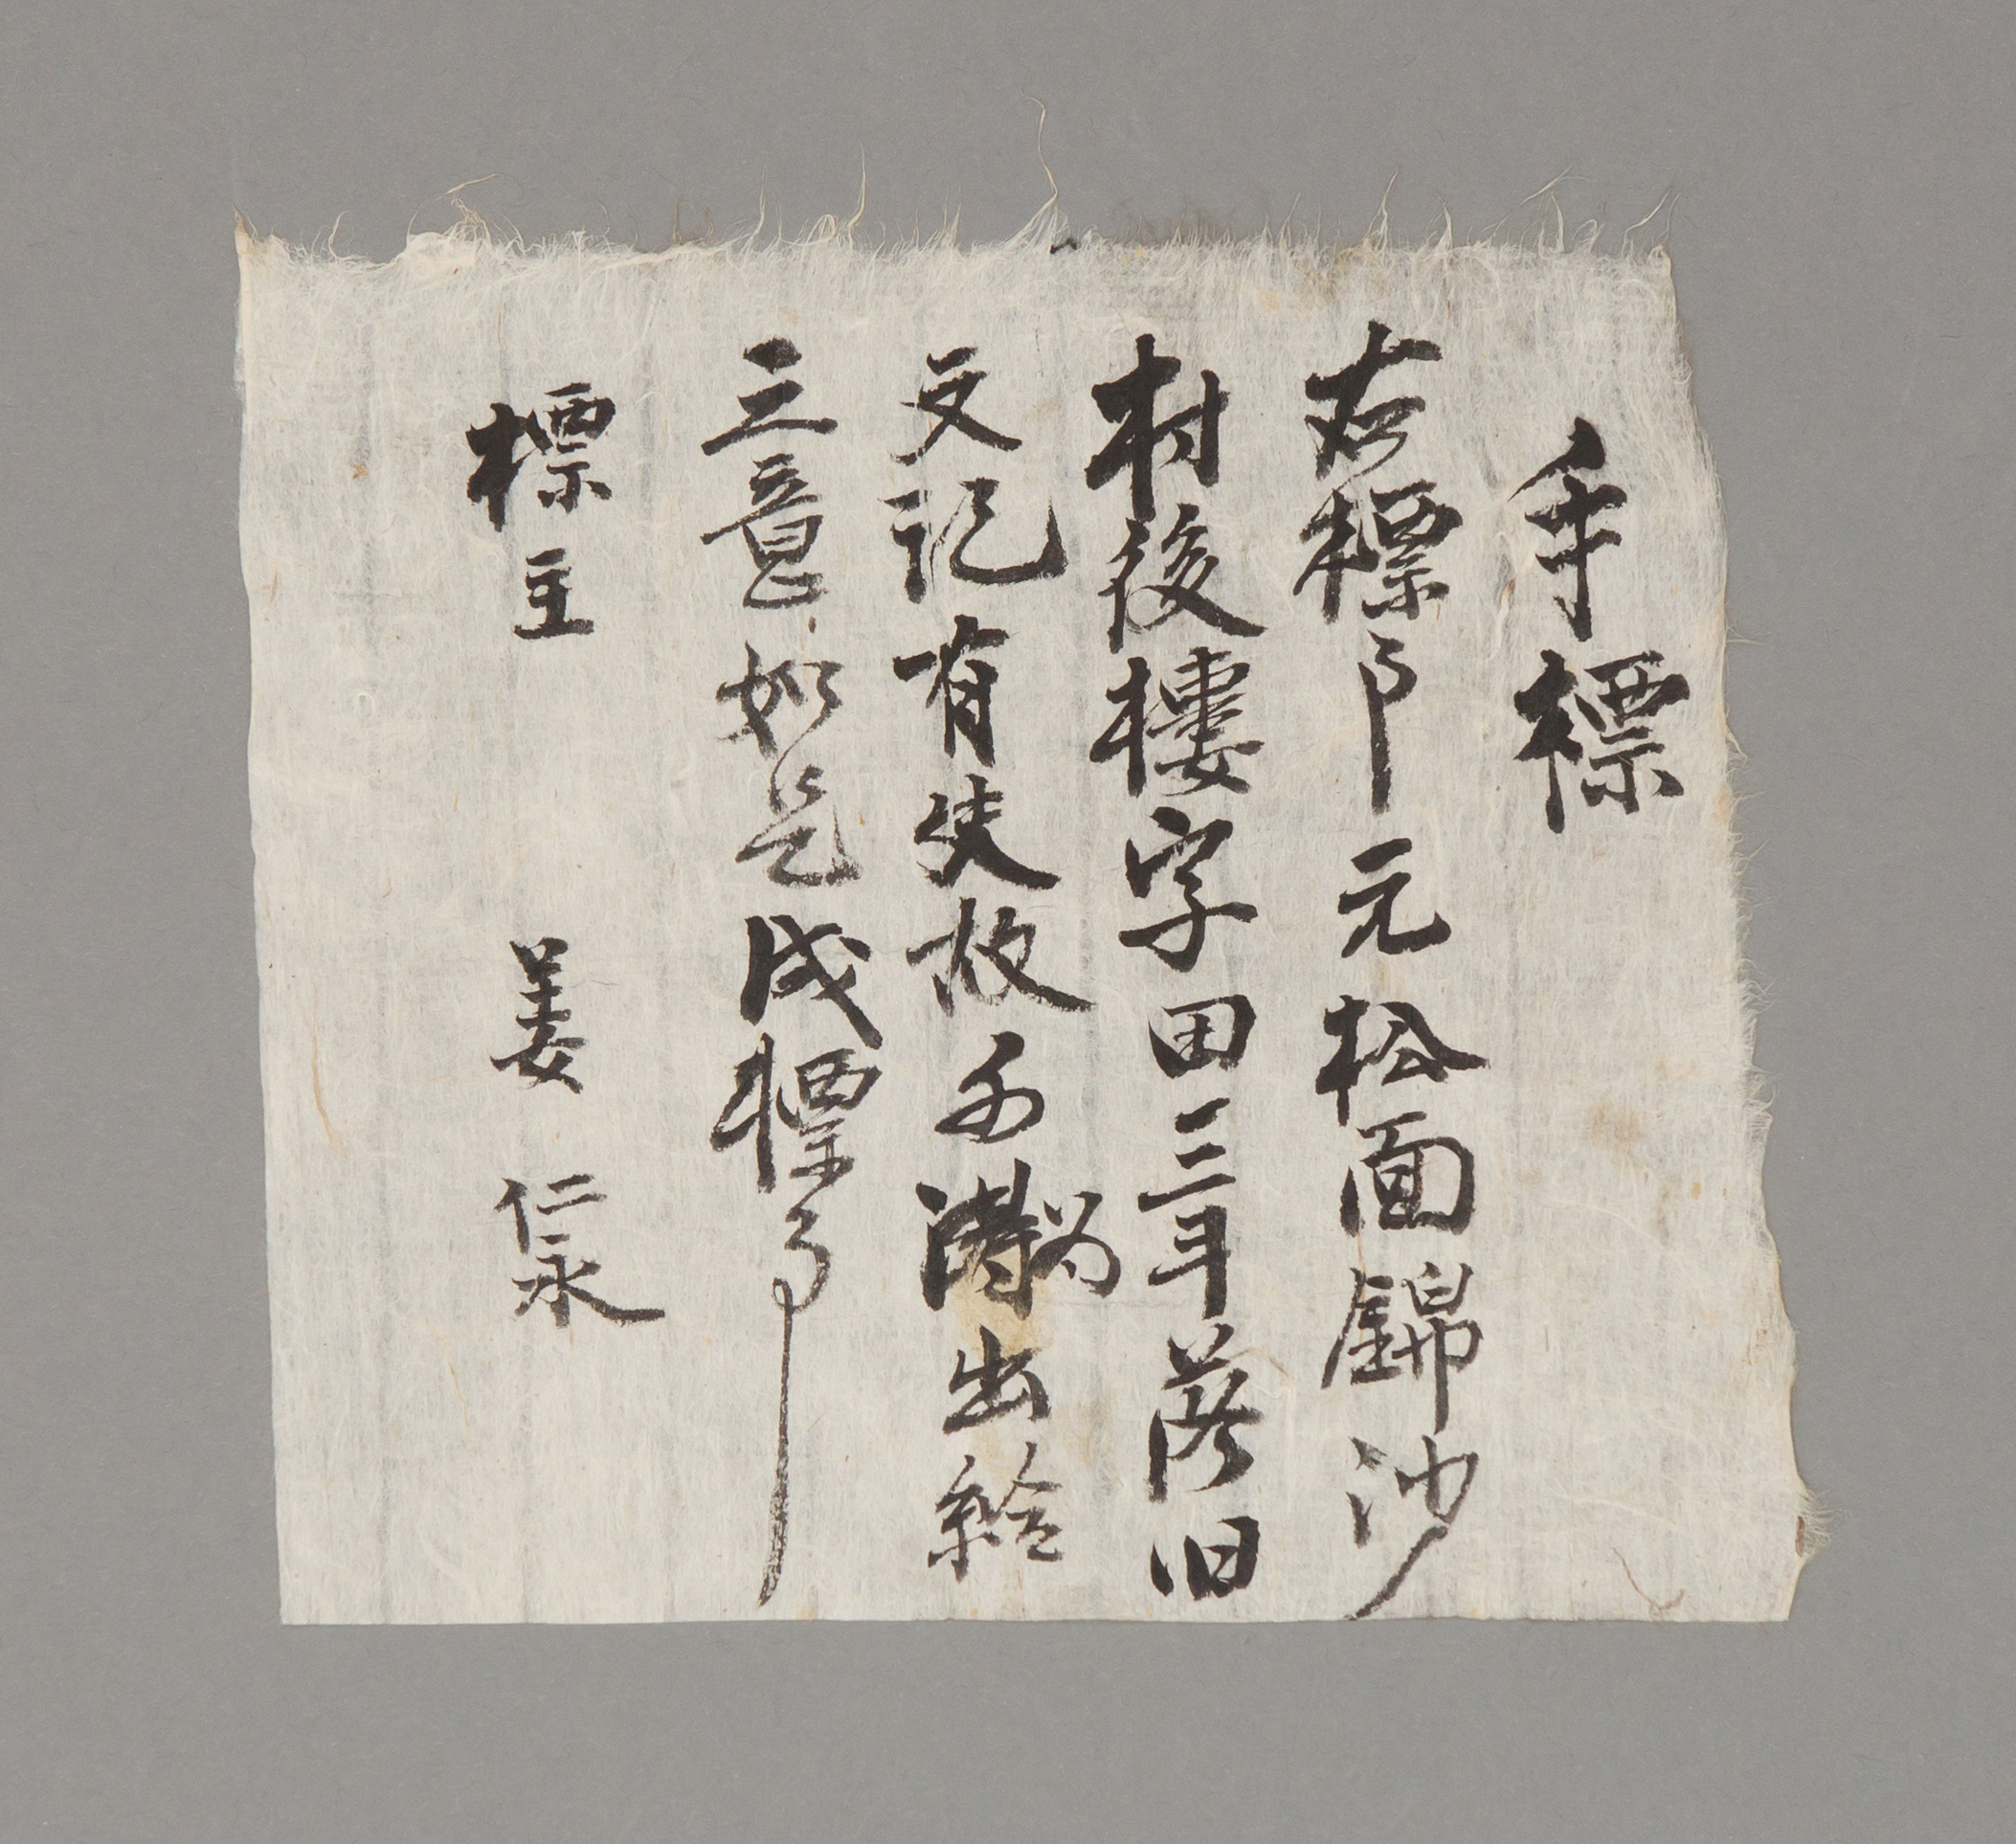 手標
右標事元松面錦沙
村後樓字田三斗落旧
文記有失故不得为出給
之意如是成標事
標主 姜仁永